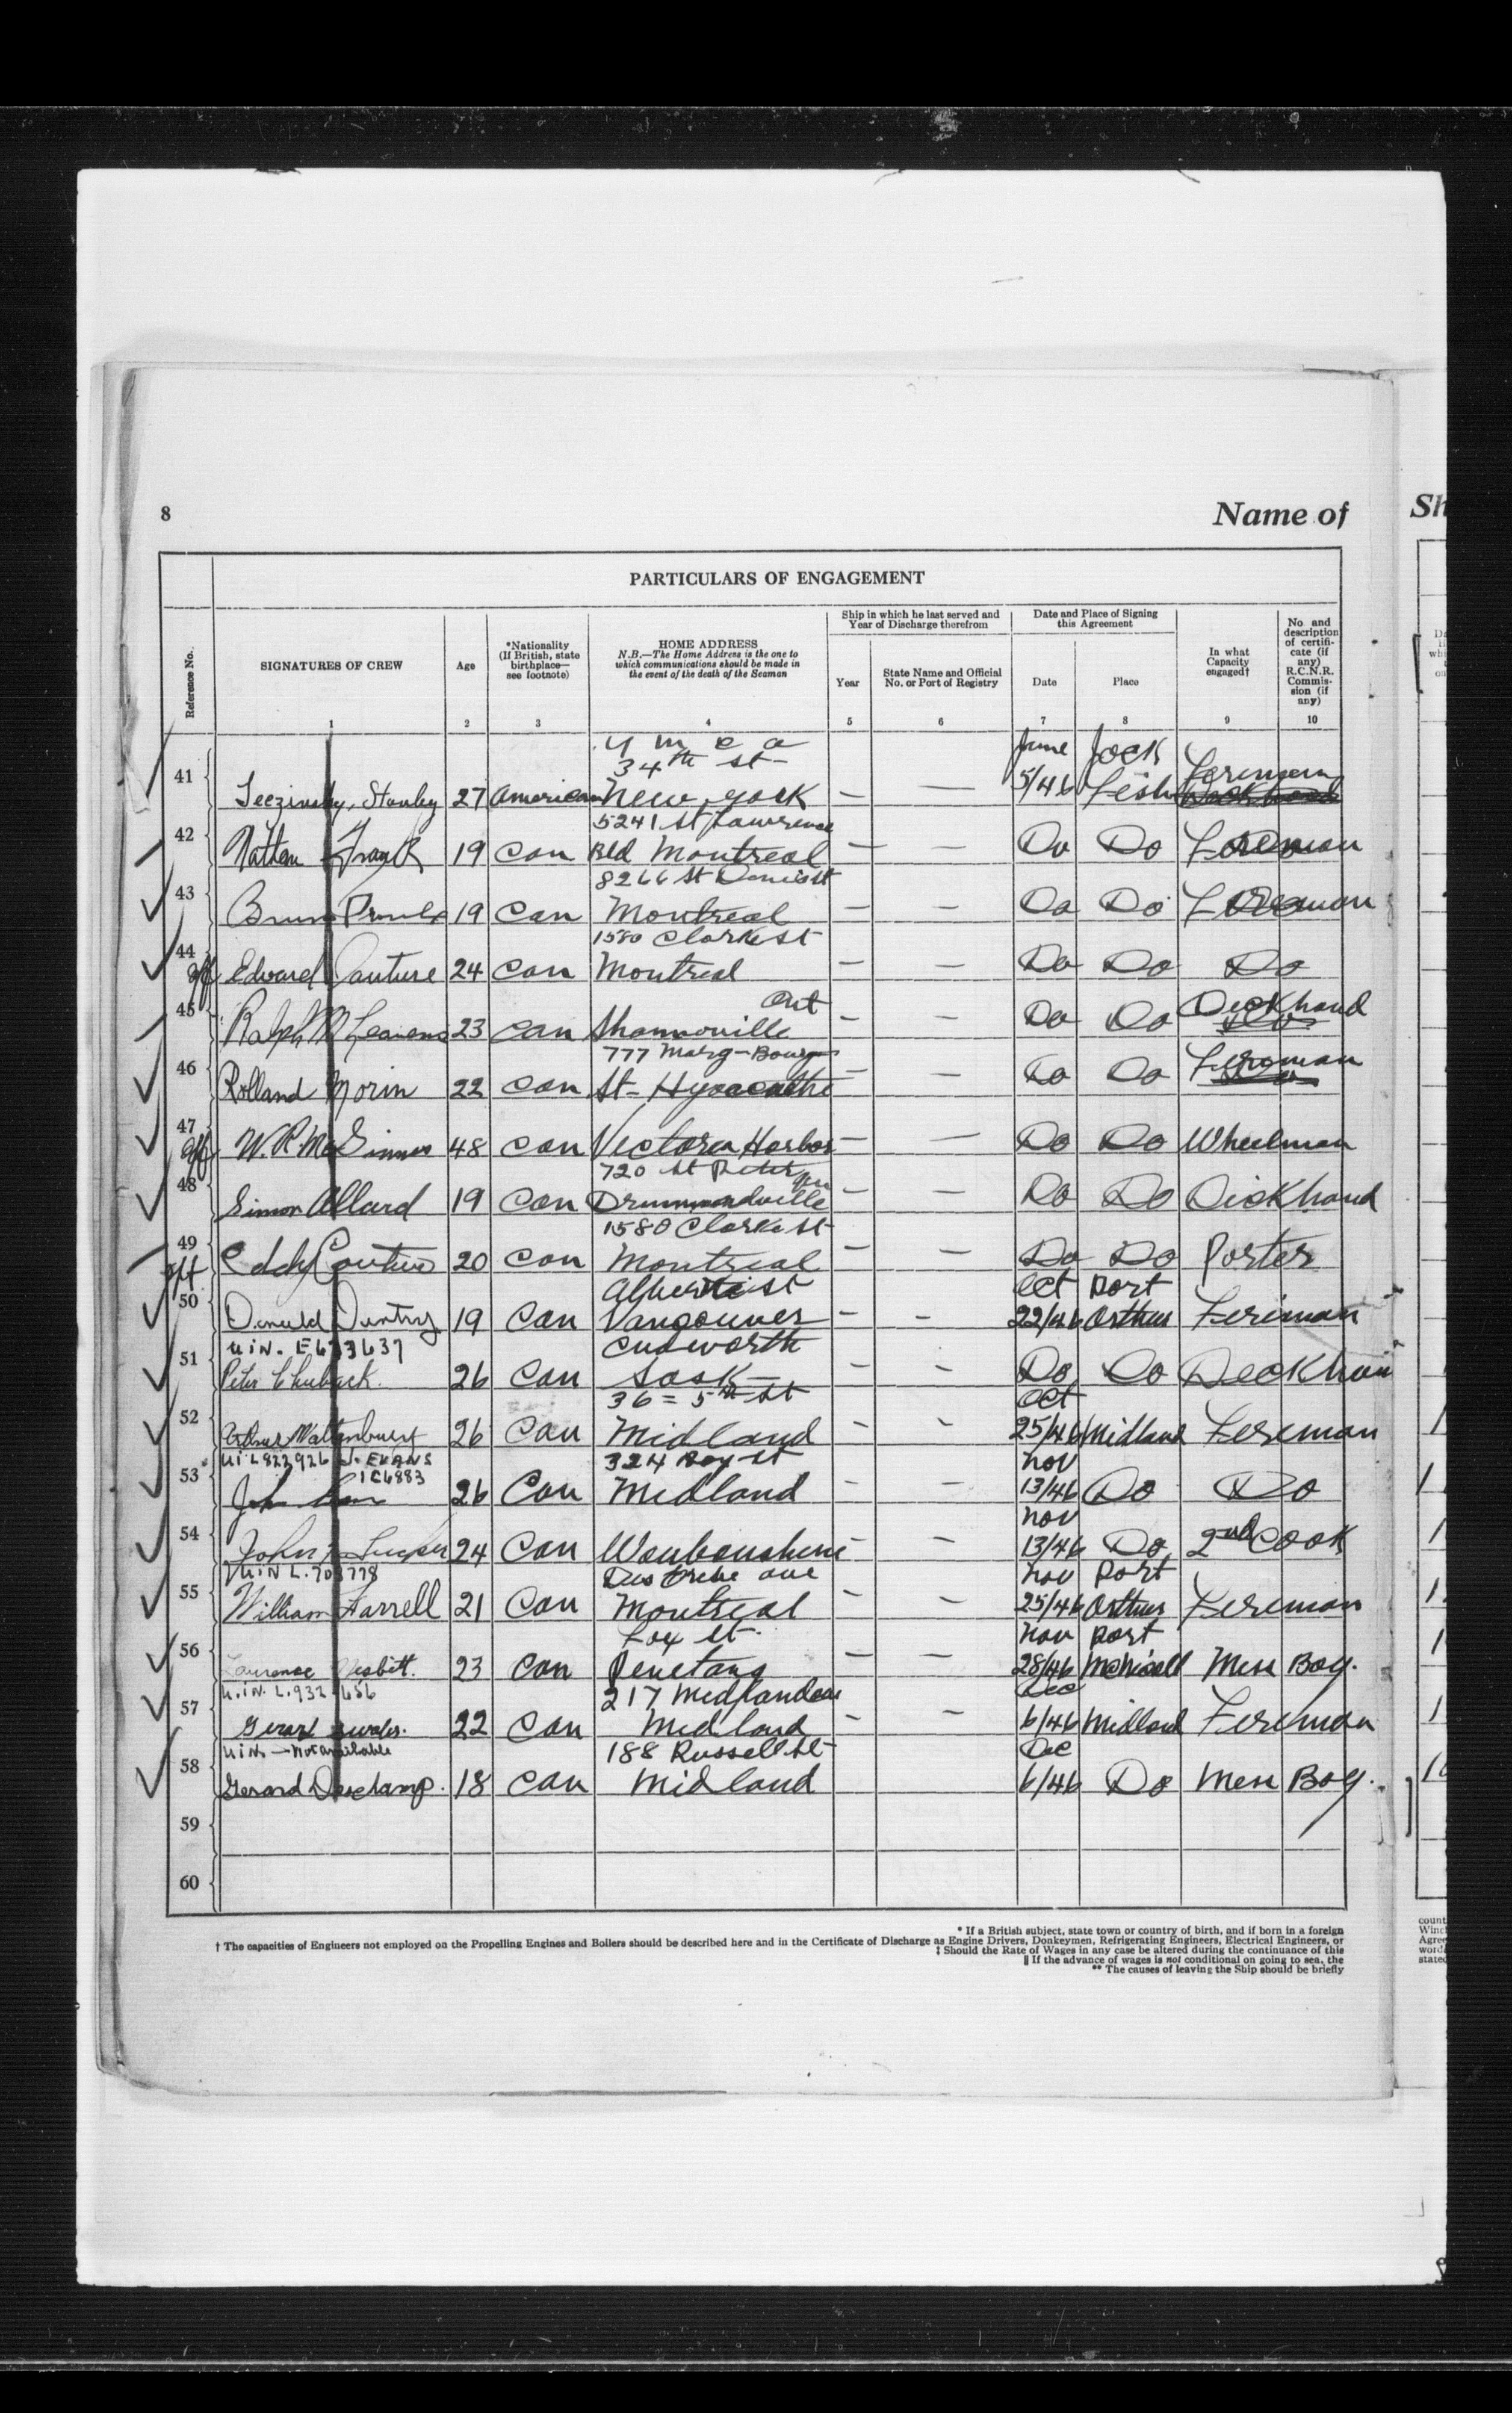 8
Name of
Sh
PARTICULARS OF ENGAGEMENT
Reference No.
SIGNATURES OF CREW
Age
*Nationality
(If British, state
birthplace—
see footnote)
HOME ADDRESS
N.B.—The Home Address is the one to
which communications should be made in
the event of the death of the Seaman
Ship in which he last served and
Year of Discharge therefrom
Year
State Name and Official
No. or Port of Registry
Date and Place of Signing
this Agreement
Date
Place
In what
Capacity
engaged†
No. and
description
of certifi-
cate (if
any)
R.C.N.R.
Commis-
sion (if
any)
1 2 3 4 5 6 7 8 9 10
Y M C A
34th St June Jock
41 Stanley 27 American New York — — 5/46 Fireman
5241 St Lawrence
42 19 Can Bld Montreal — — Do Do Fireman
8266 St Denis St
43 19 Can Montreal — — Do Do Fireman
1580 Clarke St
44 Edward Couture 24 Can Montreal — — Do Do Do
Ont
45 Ralph M 23 Can Shannonville — — Do Do Deckhand
777 Marg-Bourg
46 Rolland Morin 22 Can St-Hyacathe — — Do Do Fireman
47 W. R. 48 Can Victoria Harbor — — Do Do Wheelman
720 St
48 Simon Allard 19 Can Drummondville — — Do Do Deckhand
1580 Clarke St
49 Eddy 20 Can Montreal — — Do Do Porter
St Oct Port
50 Donald 19 Can Vancouver — — 22/46 Arthur Fireman
U i N. E673637 Cudworth
51 Peter Chuback. 26 Can Sask — — Do Do Deckhan
36 = 5th St Oct
52 26 Can Midland — — 25/46 Midland Fireman
Ui L822926 J. EVANS 324 Bay St Nov
1C6883
53 John 26 Can Midland — — 13/46 Do Do
Nov
54 John 24 Can Waubaushene — — 13/46 Do 2nd Cook
UiN L.708778 Ave Nov Port
55 William Farrell 21 Can Montreal — — 25/46 Arthur Fireman
Fox St. Nov Port
56 Laurence Nesbitt. 23 Can Penetang — — 28/46 McNicoll Mess Boy.
U.iN. L.932 656 217 Midland Ave Dec
57 22 Can Midland — — 6/46 Midland Fireman
UiN — Not available 188 Russell St Dec
58 Gerard Deschamp. 18 Can Midland 6/46 Do Mess Boy.
59
60
* If a British subject, state town or country of birth, and if born in a foreign
† The capacities of Engineers not employed on the Propelling Engines and Boilers should be described here and in the Certificate of Discharge as Engine Drivers, Donkeymen, Refrigerating Engineers, Electrical Engineers, or
‡ Should the Rate of Wages in any case be altered during the continuance of this
|| If the advance of wages is not conditional on going to sea, the
** The causes of leaving the Ship should be briefly